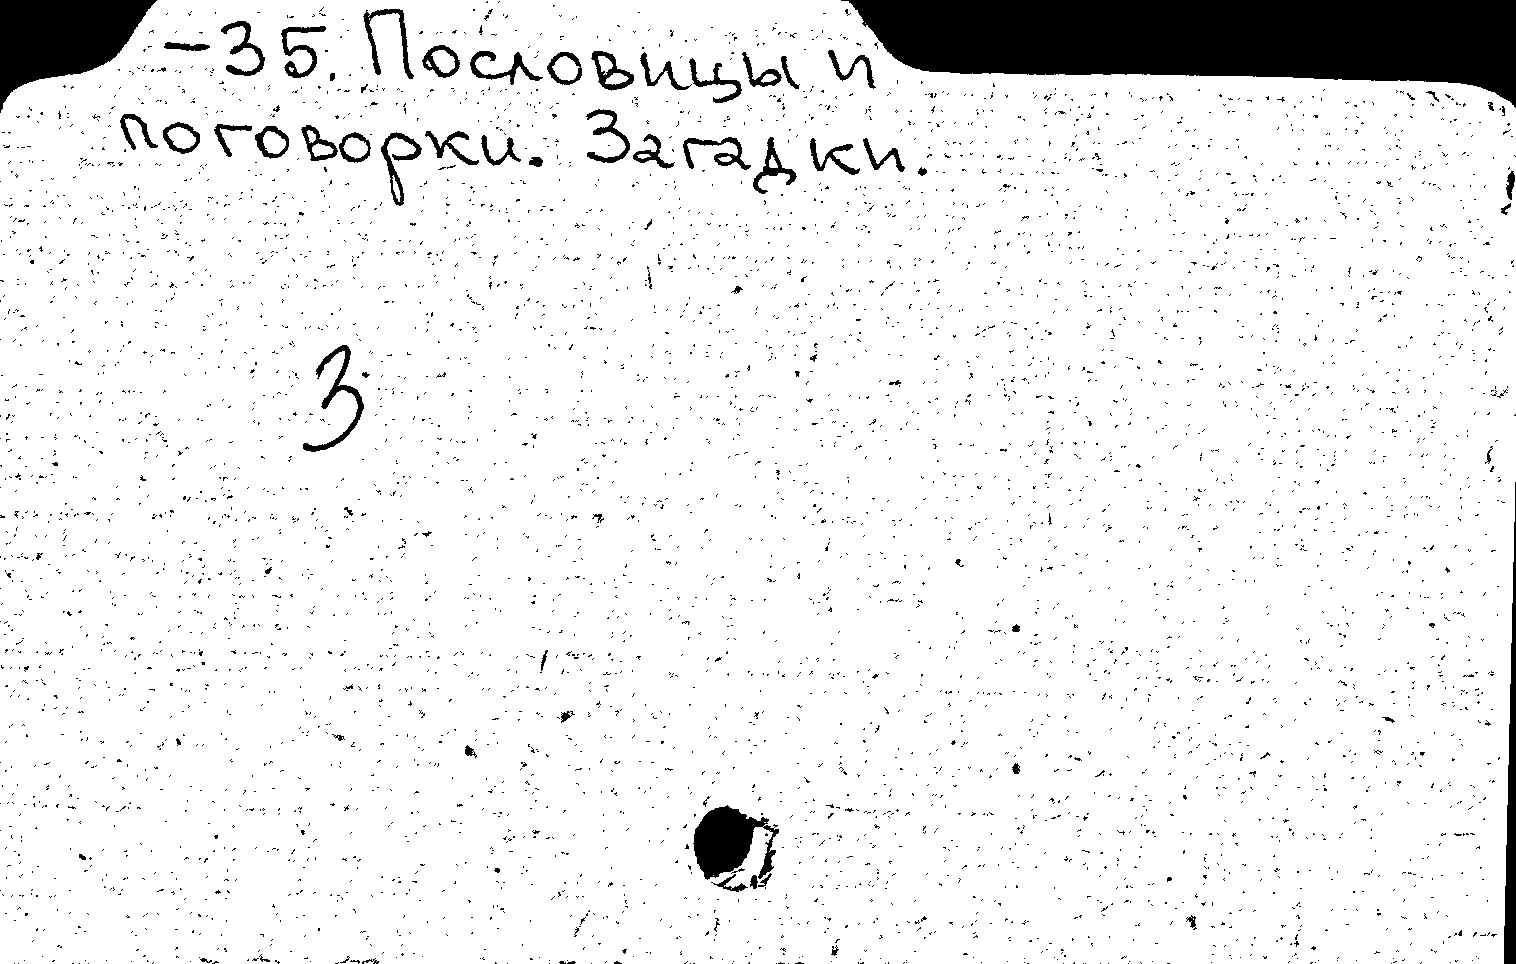 -35. Пословицы и
поговорки. Загадки.
3